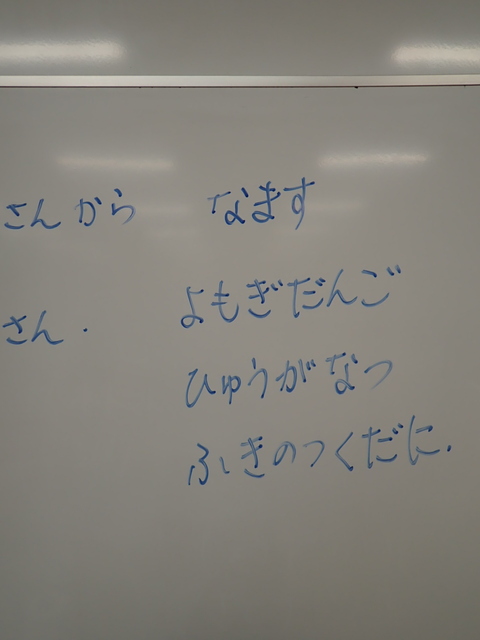 さんから なます
さん. よもぎだんご
ひゅうがなつ
ふきのつくだに.